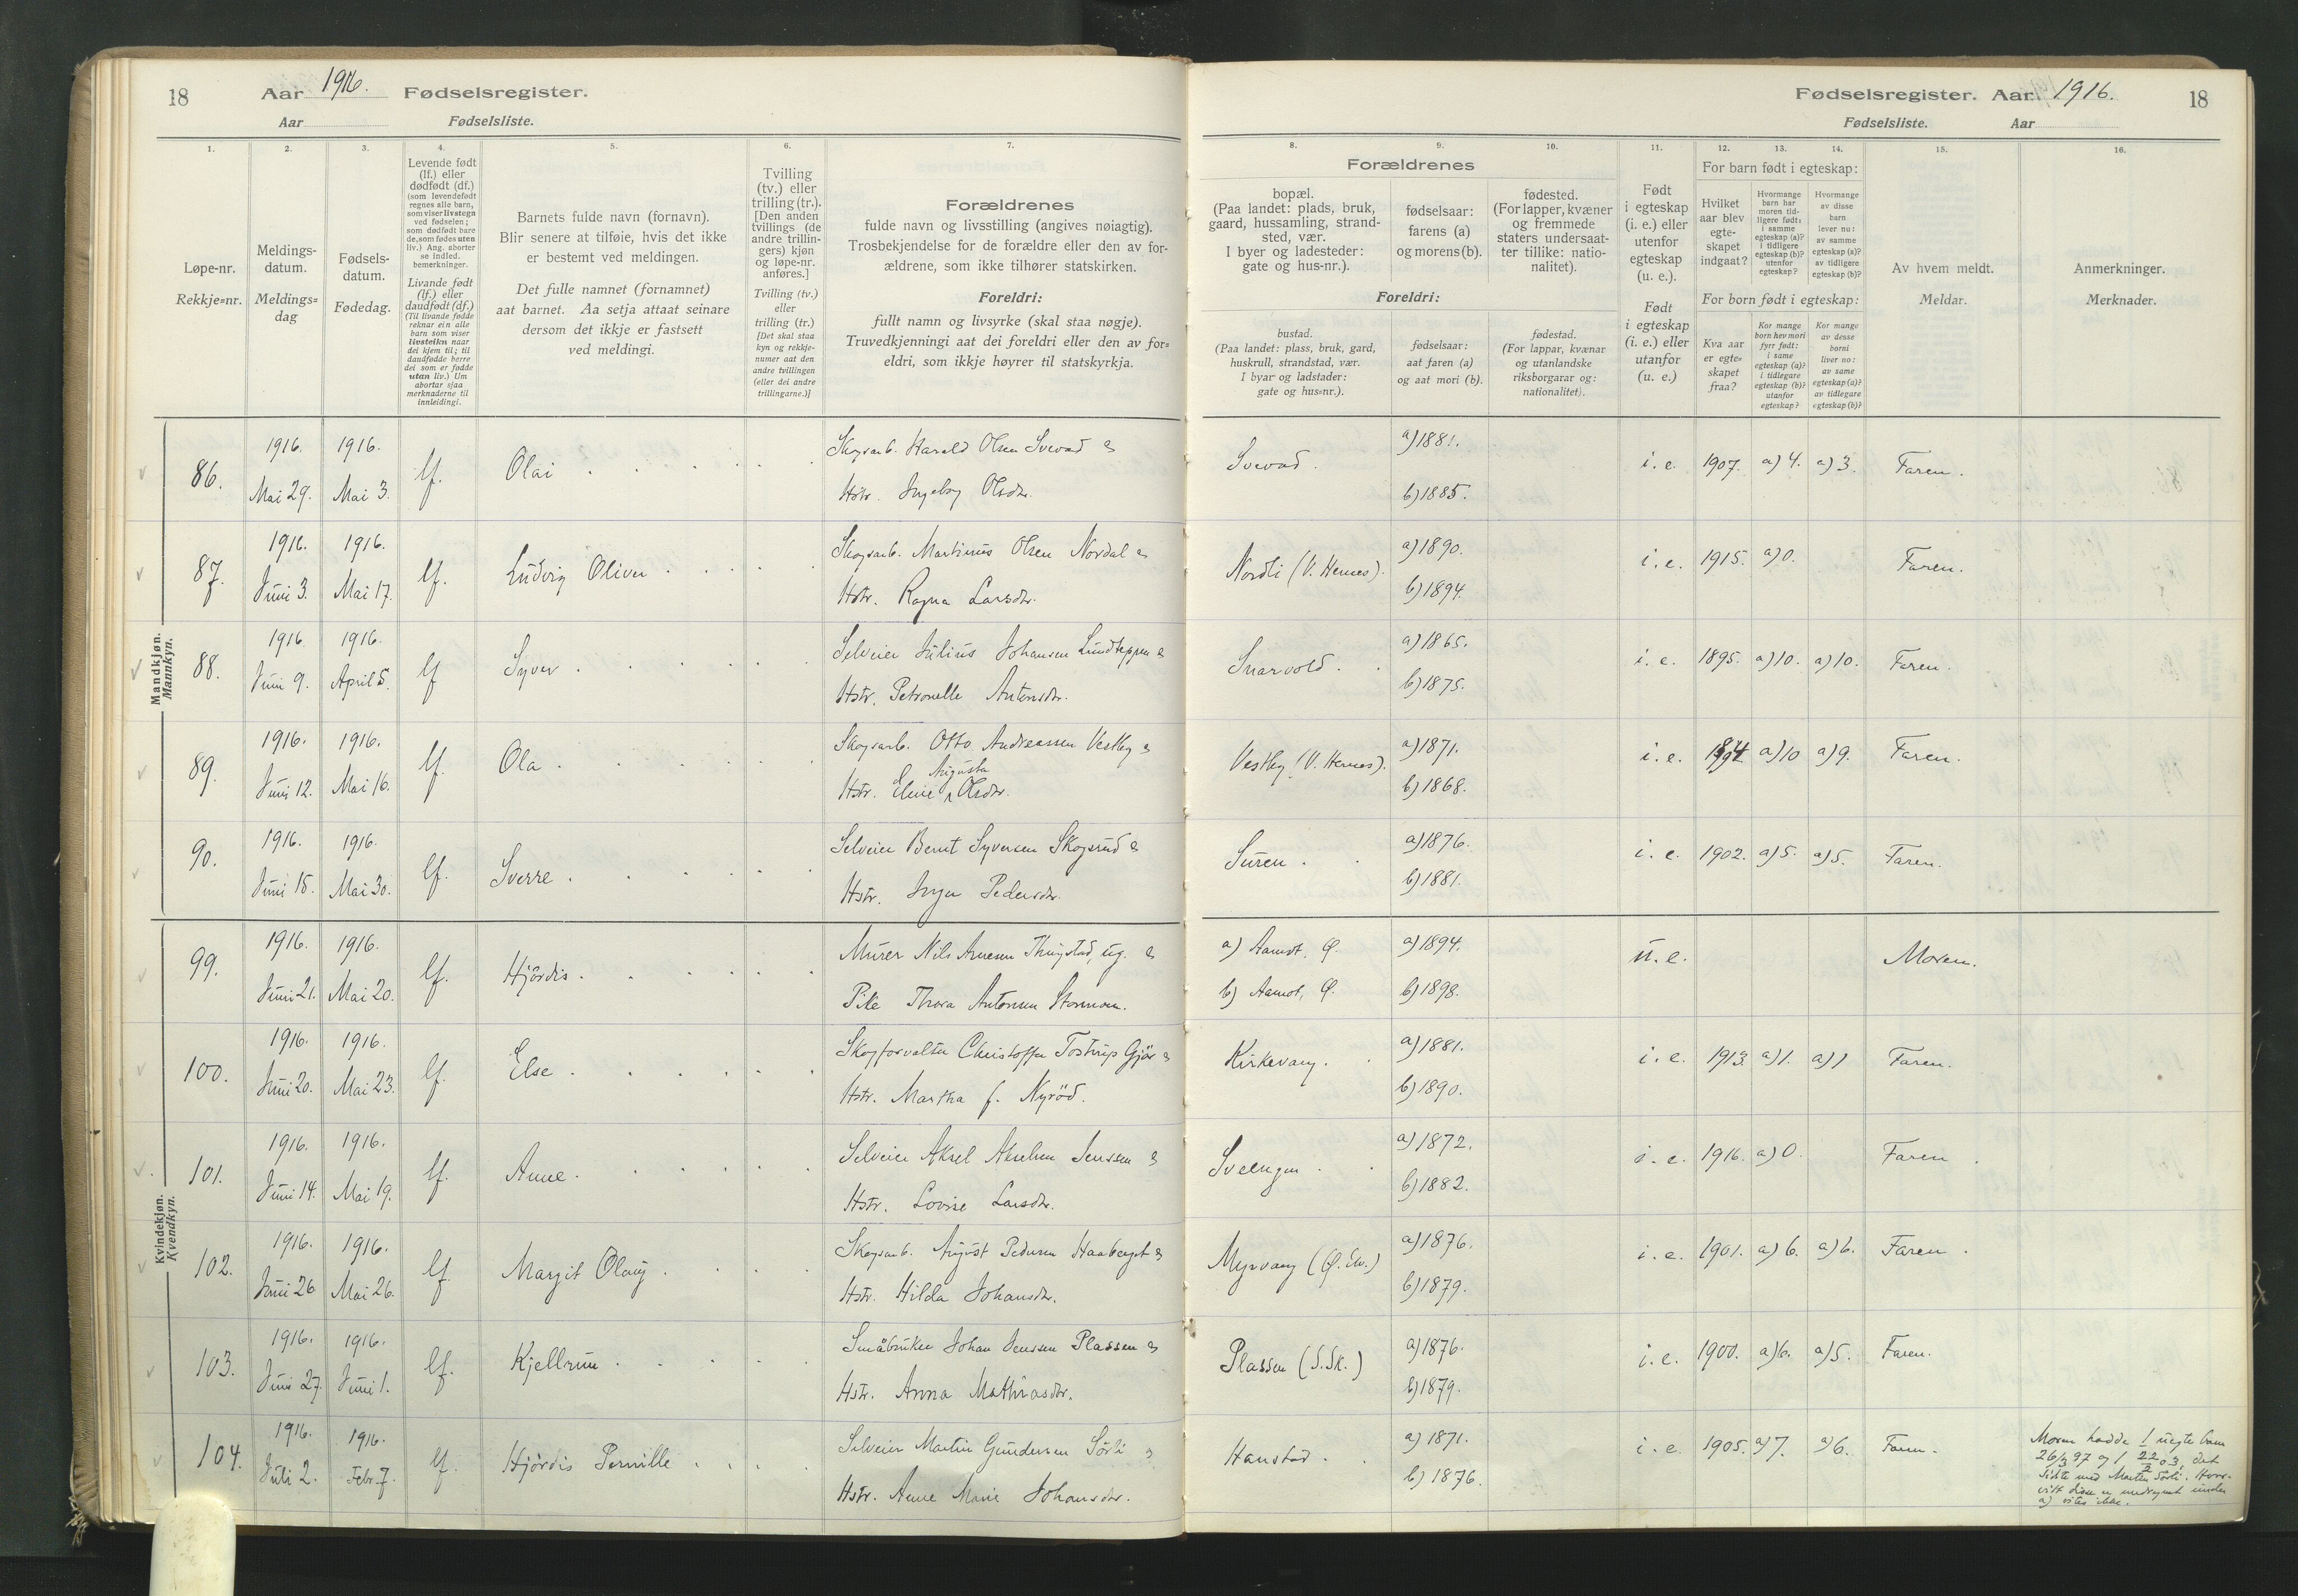 18 Aar 1916. Fødselsregister.
Aar Fødselsliste.
Fødselsregister. Aar 1916. 18
Fødselsliste. Aar
1.
Løpe-nr.
Rekkje=nr.
2.
Meldings-
datum.
Meldings=
dag
3.
Fødsels-
datum.
Fødedag.
4.
Levende født
(lf.) eller
dødfødt (df.)
(som levendefødt
regnes alle barn,
som viser livstegn
ved fødselen;
som dødfødt bare
de, som fødes uten
liv.) Ang. aborter
se indled.
bemerkninger.
Livande født
(lf.) eller
daudfødt (df.)
(Til livande fødde
reknar ein alle
barn som viser
livsteikn naar
dei kjem til; til
daudfødde berre
dei som er fødde
utan liv.) Um
abortar sjaa
merknaderne til
innleidingi.
5.
Barnets fulde navn (fornavn).
Blir senere at tilføie, hvis det ikke
er bestemt ved meldingen.
Det fulle namnet (fornamnet)
aat barnet. Aa setja attaat seinare
dersom det ikkje er fastsett
ved meldingi.
6.
Tvilling
(tv.) eller
trilling (tr.).
[Den anden
tvillings (de
andre trillin-
gers) kjøn
og løpe-nr.
anføres.]
Tvilling (tv.)
eller
trilling (tr.)
[Det skal staa
kyn og rekkje-
numer aat den
andre tvillingen
(eller dei andre
trillingarne.)]
7.
Forældrenes
fulde navn og livsstilling (angives nøiagtig).
Trosbekjendelse for de forældre eller den av for-
ældrene, som ikke tilhører statskirken.
Foreldri:
fullt namn og livsyrke (skal staa nøgje).
Truvedkjenningi aat dei foreldri eller den av for=
eldri, som ikkje høyrer til statskyrkja.
Forældrenes
8.
bopæl.
(Paa landet: plads, bruk,
gaard, hussamling, strand-
sted, vær.
I byer og ladesteder:
gate og hus-nr.).
9.
fødselsaar:
farens (a)
og morens (b).
10.
fødested.
(For lapper, kvæner
og fremmede
staters undersaat-
ter tillike: natio-
nalitet).
Foreldri:
bustad.
(Paa landet: plass, bruk, gard,
huskrull, strandstad, vær.
I byar og ladstader:
gate og hus=nr.).
fødselsaar:
aat faren (a)
og aat mori (b).
fødestad.
(For lappar, kvænar
og utanlandske
riksborgarar og:
nationalitet).
11.
Født
i egteskap
(i. e.) eller
utenfor
egteskap
(u. e.).
Født
i egteskap
(i. e.) eller
utanfor
(u. e.)
For barn født i egteskap:
12.
Hvilket
aar blev
egte-
skapet
indgaat?
13.
Hvormange
barn har
moren tid-
ligere født:
i samme
egteskap (a)?
i tidligere
egteskap (b)?
utenfor
egteskap?
14.
Hvormange
av disse
barn
lever nu:
av samme
egteskap (a)?
av tidligere
egteskap (b)?
For born født i egteskap:
Kva aar
er egte=
skapet
fraa?
Kor mange
born hev mori
fyrr født:
i same
egteskap (a)?
i tidlegare
egteskap (b)?
utanfor
egteskap?
Kor mange
av desse
borni
liver no:
av same
egteskap (a)?
av tidlegare
egteskap (b)?
15.
Av hvem meldt.
Meldar.
16.
Anmerkninger.
Merknader.
Mandkjøn.
Mannkyn.
86. 1916. Mai 29. 1916. Mai 3. lf. Olai Skogsarb. Harald Olsen Svevad &
Hstr. Ingeborg Olsdtr. Svevad. a) 1881. b) 1885. i. e. 1907. a) 4. a) 3. Faren.
87. 1916. Juni 3. 1916. Mai 17. lf. Ludvig Oliver Skogsarb. Martinus Olsen Nordal &
Hstr. Ragna Larsdtr. Nordli (V. Hernes). a) 1890. b) 1894. i. e. 1915. a) 0. Faren.
88. 1916 Juni 9. 1916. April 5. lf Syver Selveier Julius Johansen Lundteppen &
Hstr. Petronelle Antonsdtr. Snarvold. a) 1865. b) 1875. i. e. 1895. a) 10. a) 10. Faren.
89. 1916. Juni 12. 1916. Mai 16. lf. Ola Skogsarb. Otto Andreassen Vestby &
Hstr. Eline Augusta Olsdtr. Vestby (V. Hernes). a) 1871. b) 1868. i. e. 1894 a) 10 a) 9. Faren.
90. 1916. Juni 15. 1916. Mai 30. lf. Sverre Selveier Bernt Syversen Skogsrud &
Hstr. Inga Pedersdtr. Suren. a) 1876. b) 1881. i. e. 1902. a) 5. a) 5. Faren.
Kvindekjøn.
Kvendkyn.
99. 1916. Juni 21. 1916. Mai 20. lf. Hjördis Murer Nils Arnesen Thingstad, ug. &
Pike Thora Antonsen Stormoen. a) Aamot, Ø. b) Aamot, Ø. a) 1894. b) 1898. u. e. Moren.
100. 1916. Juni 20. 1916. Mai 23. lf. Else Skogforvalter Christoffer Tostrup Gjör &
Hstr. Martha f. Nyröd. Kirkevang. a) 1881. b) 1890. i. e. 1913. a) 1. a) 1 Faren.
101. 1916. Juni 14. 1916. Mai 19. lf. Anne Selveier Aksel Akselsen Jenssen &
Hstr. Lovise Larsdtr. Sveengen. a) 1872. b) 1882. i. e. 1916. a) 0. Faren.
102. 1916. Juni 26 1916. Mai 26. lf. Margit Olaug Skogsarb. August Pedersen Haaberget &
Hstr. Hilda Johansdtr. Myrvang (Ø. Elv.) a) 1876. b) 1879. i. e. 1901. a) 6. a) 6. Faren.
103. 1916. Juni 27. 1916. Juni 1. lf. Kjellrun Småbruker Johan Jenssen Plassen &
Hstr. Anna Mathiasdtr. Plassen (S. Sk.) a) 1876. b) 1879. i. e. 1900. a) 6. a) 5. Faren.
104. 1916. Juli 2. 1916. Febr. 7. lf. Hjördis Pernille Selveier Martin Gundersen Sörli &
Hstr. Anne Marie Johansdtr. Hanstad. a) 1871. b) 1876. i. e. 1905. a) 7. a) 6. Faren.
Moren hadde 1 uegte barn
26/3 97 og 1 22/2 03, det
sidste med Martin Sörli. Hvor-
vidt disse er medregnet under
a) vites ikke.